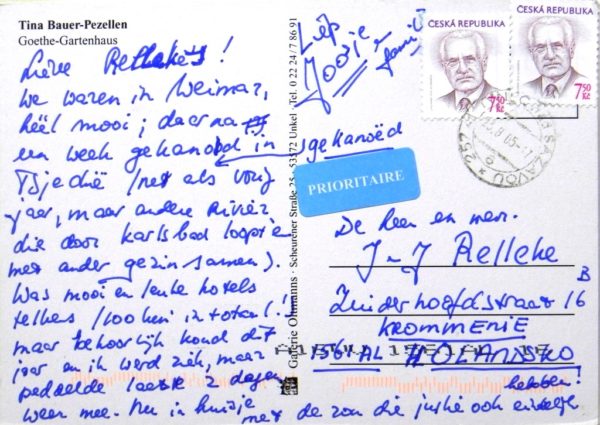 Tina Bauer-Pezellen
Goethe-Gartenhaus
Lieve Relleke's!
We waren in Weimar,
héél mooi; daarna
een week gekanood in
Tsjechië (net als vorig
jaar, maar andere rivier
die door Karlsbad loopt en
met ander gezin samen).
Was mooi en leuke hotels
telkens (100 km in totaal!)
maar behoorlijk koud dit
jaar en ik werd ziek, maar
peddelde laatste 2 dagen
weer mee. Nu in huisje
met de zon die jullie ook
hebben!
Joosje
gekanoëd
Galerie Oltmanns · Scheurener Straße 25 · 53572 Unkel · Tel. 0 22 24/7 86 91
ČESKÁ REPUBLIKA
7,50 Kč
ČESKÁ REPUBLIKA
7,50 Kč
PRIORITAIRE
De heer en mevr.
J. Relleke
Zuiderhoofdstraat 16
B
KROMMENIE
1561 AL HOLANDSKO